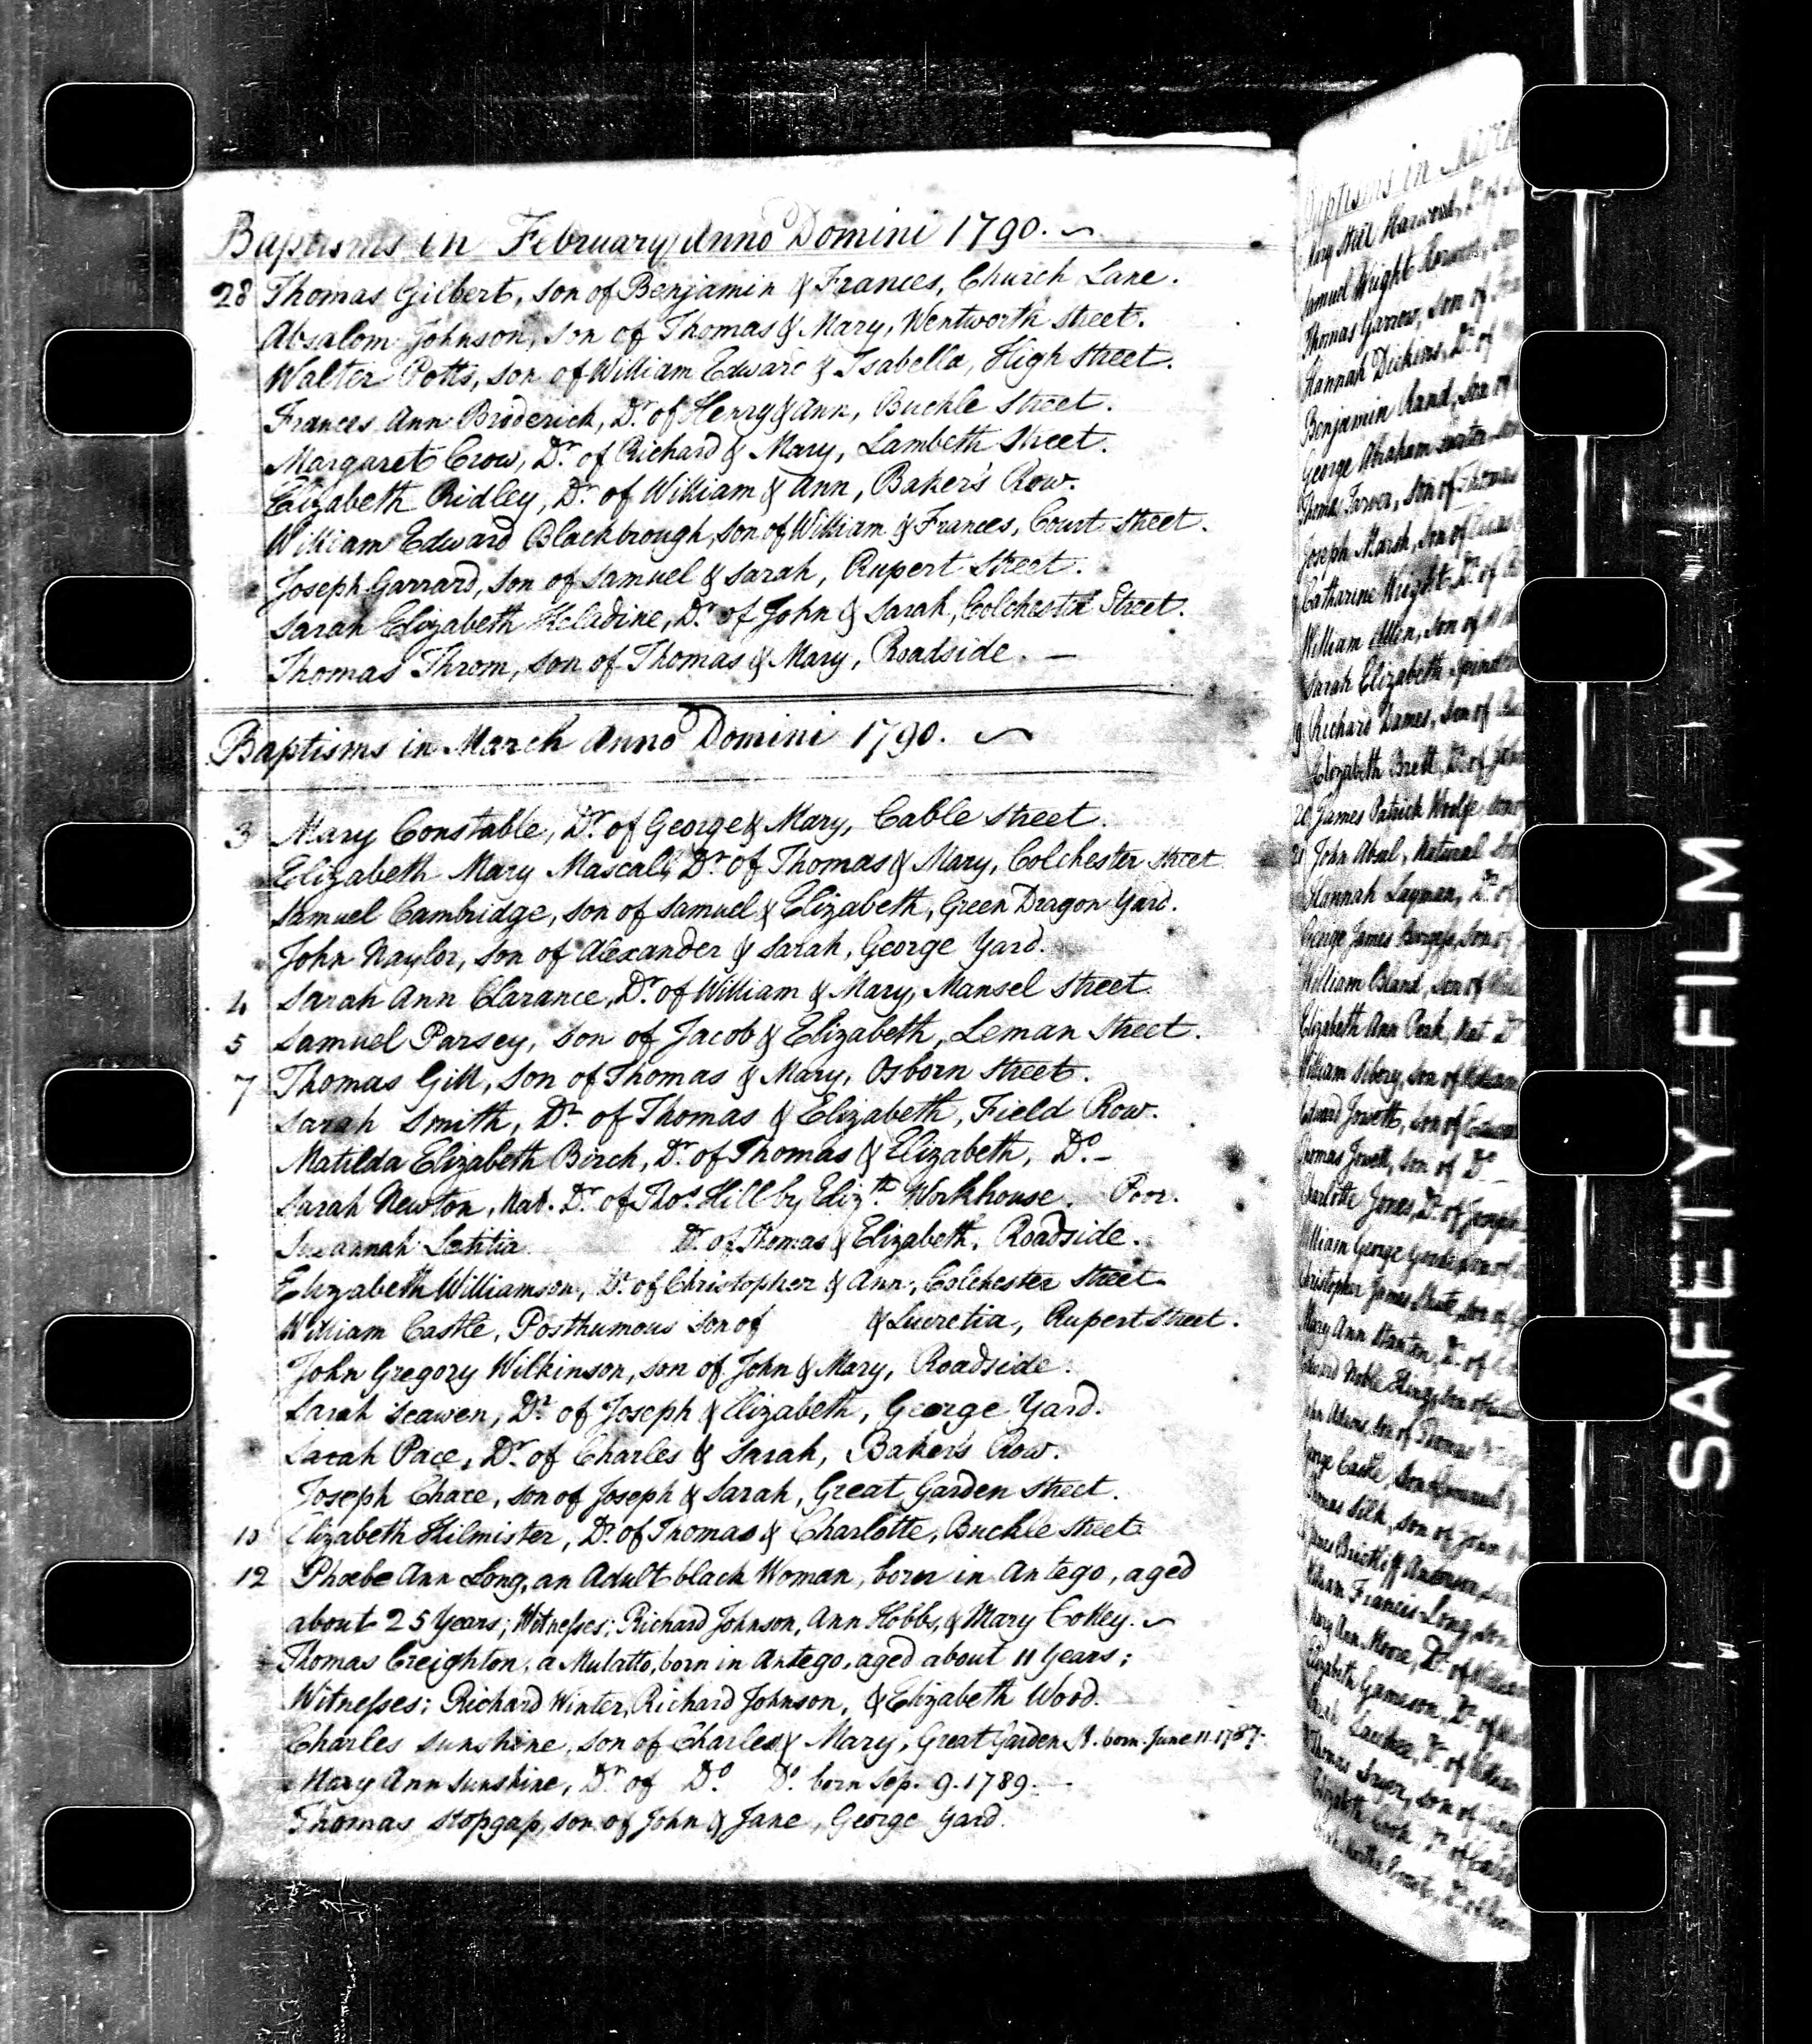 Baptisms in February Anno Domini 1790.
28 Thomas Gilbert, Son of Benjamin & Frances, Church Lane.
Absalom Johnson, Son of Thomas & Mary, Wentworth Street.
Walter Potts, Son of William Edward & Isabella, High Street.
Frances Ann Broderick, Dr. of Henry & Ann, Buckle Street.
Margaret Crow, Dr. of Richard & Mary, Lambeth Street.
Elizabeth Ridley, Dr. of William & Ann, Baker's Row.
William Edward Blackbrough, Son of William & Frances, Court Street.
Joseph Garrard, Son of Samuel & Sarah, Rupert Street.
Sarah Elizabeth Dr. of John & Sarah, Colchester Street.
Thomas Throm, Son of Thomas & Mary, Roadside. —
Baptisms in March Anno Domini 1790.
3 Mary Constable, Dr. of George & Mary, Cable Street.
Elizabeth Mary Mascall, Dr. of Thomas & Mary, Colchester Street
Samuel Cambridge, Son of Samuel & Elizabeth, Green Dragon Yard.
John Naylor, Son of Alexander & Sarah, George Yard.
4 Sarah Ann Clarance, Dr. of William & Mary, Mansel Street
5 Samuel Parsey, Son of Jacob & Elizabeth, Leman Street.
7 Thomas Gill, Son of Thomas & Mary, Osborn Street.
Sarah Smith, Dr. of Thomas & Elizabeth, Field Row.
Matilda Elizabeth Birch, Dr. of Thomas & Elizabeth, Do. –
Sarah Newton, Nat. Dr. of Thos. Hill by Elizth. Workhouse. Poor.
Susannah Letitia Dr. of Thomas & Elizabeth, Roadside.
Elizabeth Williamson, Dr. of Christopher & Ann, Colchester Street
William Castle, Posthumous Son of & Lucretia, Rupert Street.
John Gregory Wilkinson, Son of John & Mary, Roadside.
Sarah Seawen, Dr. of Joseph & Elizabeth, George Yard.
Sarah Pace, Dr. of Charles & Sarah, Baker's Row.
Joseph Chace, Son of Joseph & Sarah, Great Garden Street.
10 Elizabeth Kilmister, Dr. of Thomas & Charlotte, Buckle Street
12 Phoebe Ann Long, an Adult black Woman, born in Antego, aged
about 25 Years; Witnesses; Richard Johnson, Ann Hobbs, & Mary
Thomas Creighton, a Mulatto, born in Antego, aged about 11 Years;
Witnesses; Richard Winter, Richard Johnson, & Elizabeth Wood.
Charles Sunshine, Son of Charles & Mary, Great Garden St. born June 11. 1787.
Mary Ann Sunshine, Dr. of Do. Do. born Sep. 9. 1789. —
Thomas Stopgap, Son of John & Jane, George Yard.
Baptisms in
Mary Harwood, Dr. of
Samuel Wright
Thomas Garrow, Son of
Hannah Dickins, Dr. of
Benjamin Rand, Son of
George Abraham
Thomas Son of Thomas
Joseph Marsh, Son of
Catharine Wright Dr. of
William Allen, Son of
Sarah Elizabeth
19 Richard Son of
Elizabeth Brett, Dr. of
20 James Patrick Woolfe
21 John Natural
Hannah Layman, Dr. of
George James Burgess, Son of
William Bland, Son of
Elizabeth Ann Peak, Nat. Dr
William Son of William
Edward Jowett, Son of Edward
Thomas Jowett, Son of Do —
Charlotte Jones, Dr. of Joseph
William George Son of
Christopher James Son of
Mary Ann Stanton, Dr. of
Edward Noble Son of
John Adams, Son of Thomas
George Castle, Son of
Thomas Silk, Son of John
James Anderson
William Francis Long, Son
Mary Ann Moore, Dr. of William
Elizabeth Gameson, Dr. of
Dr. of William
Thomas Son of
Elizabeth Cook, Dr. of
SAFETY FILM